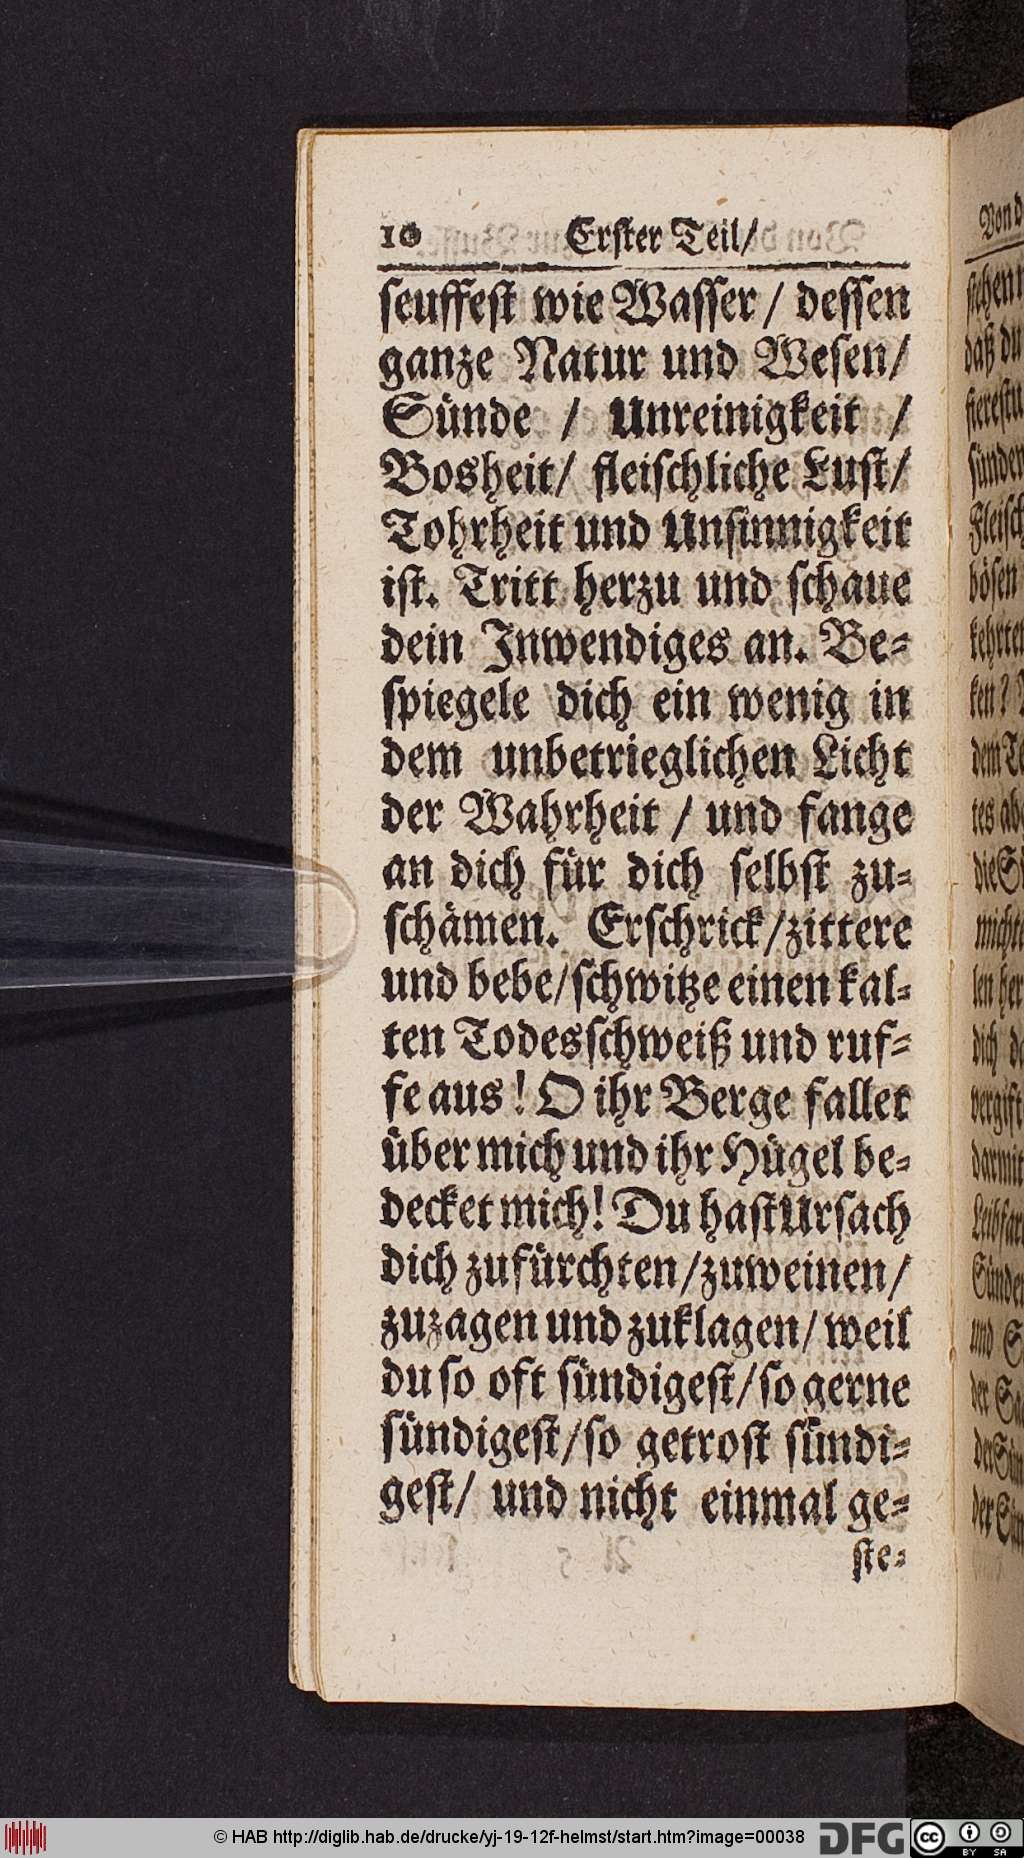 10 Erster Teil/
seuffest wie Wasser / dessen
ganze Natur und Wesen/
Sünde / Unreinigkeit /
Bosheit/ fleischliche Lust/
Tohrheit und Unsinnigkeit
ist. Tritt herzu und schaue
dein Inwendiges an. Be-
spiegele dich ein wenig in
dem unbetrieglichen Licht
der Wahrheit / und fange
an dich für dich selbst zu-
schämen. Erschrick/zittere
und bebe/schwitze einen kal-
ten Todesschweiß und ruf-
fe aus! O ihr Berge fallet
über mich und ihr Hügel be-
decket mich! Du hast Ursach
dich zufürchten/zuweinen/
zuzagen und zuklagen/ weil
du so oft sündigest/so gerne
sündigest/so getrost sündi-
gest/ und nicht einmal ge-
ste-
Von d
stehen
daß du
sierestu
sünden
Fleisch
bösen
kehrten
ken?
dem Te
tes abe
die Sü
michte
len her
dich da
vergift
darmit
Leibfar
Sünde
und S
der Sa
der Sün
der Sün
© HAB http://diglib.hab.de/drucke/yj-19-12f-helmst/start.htm?image=00038 DFG cc BY SA